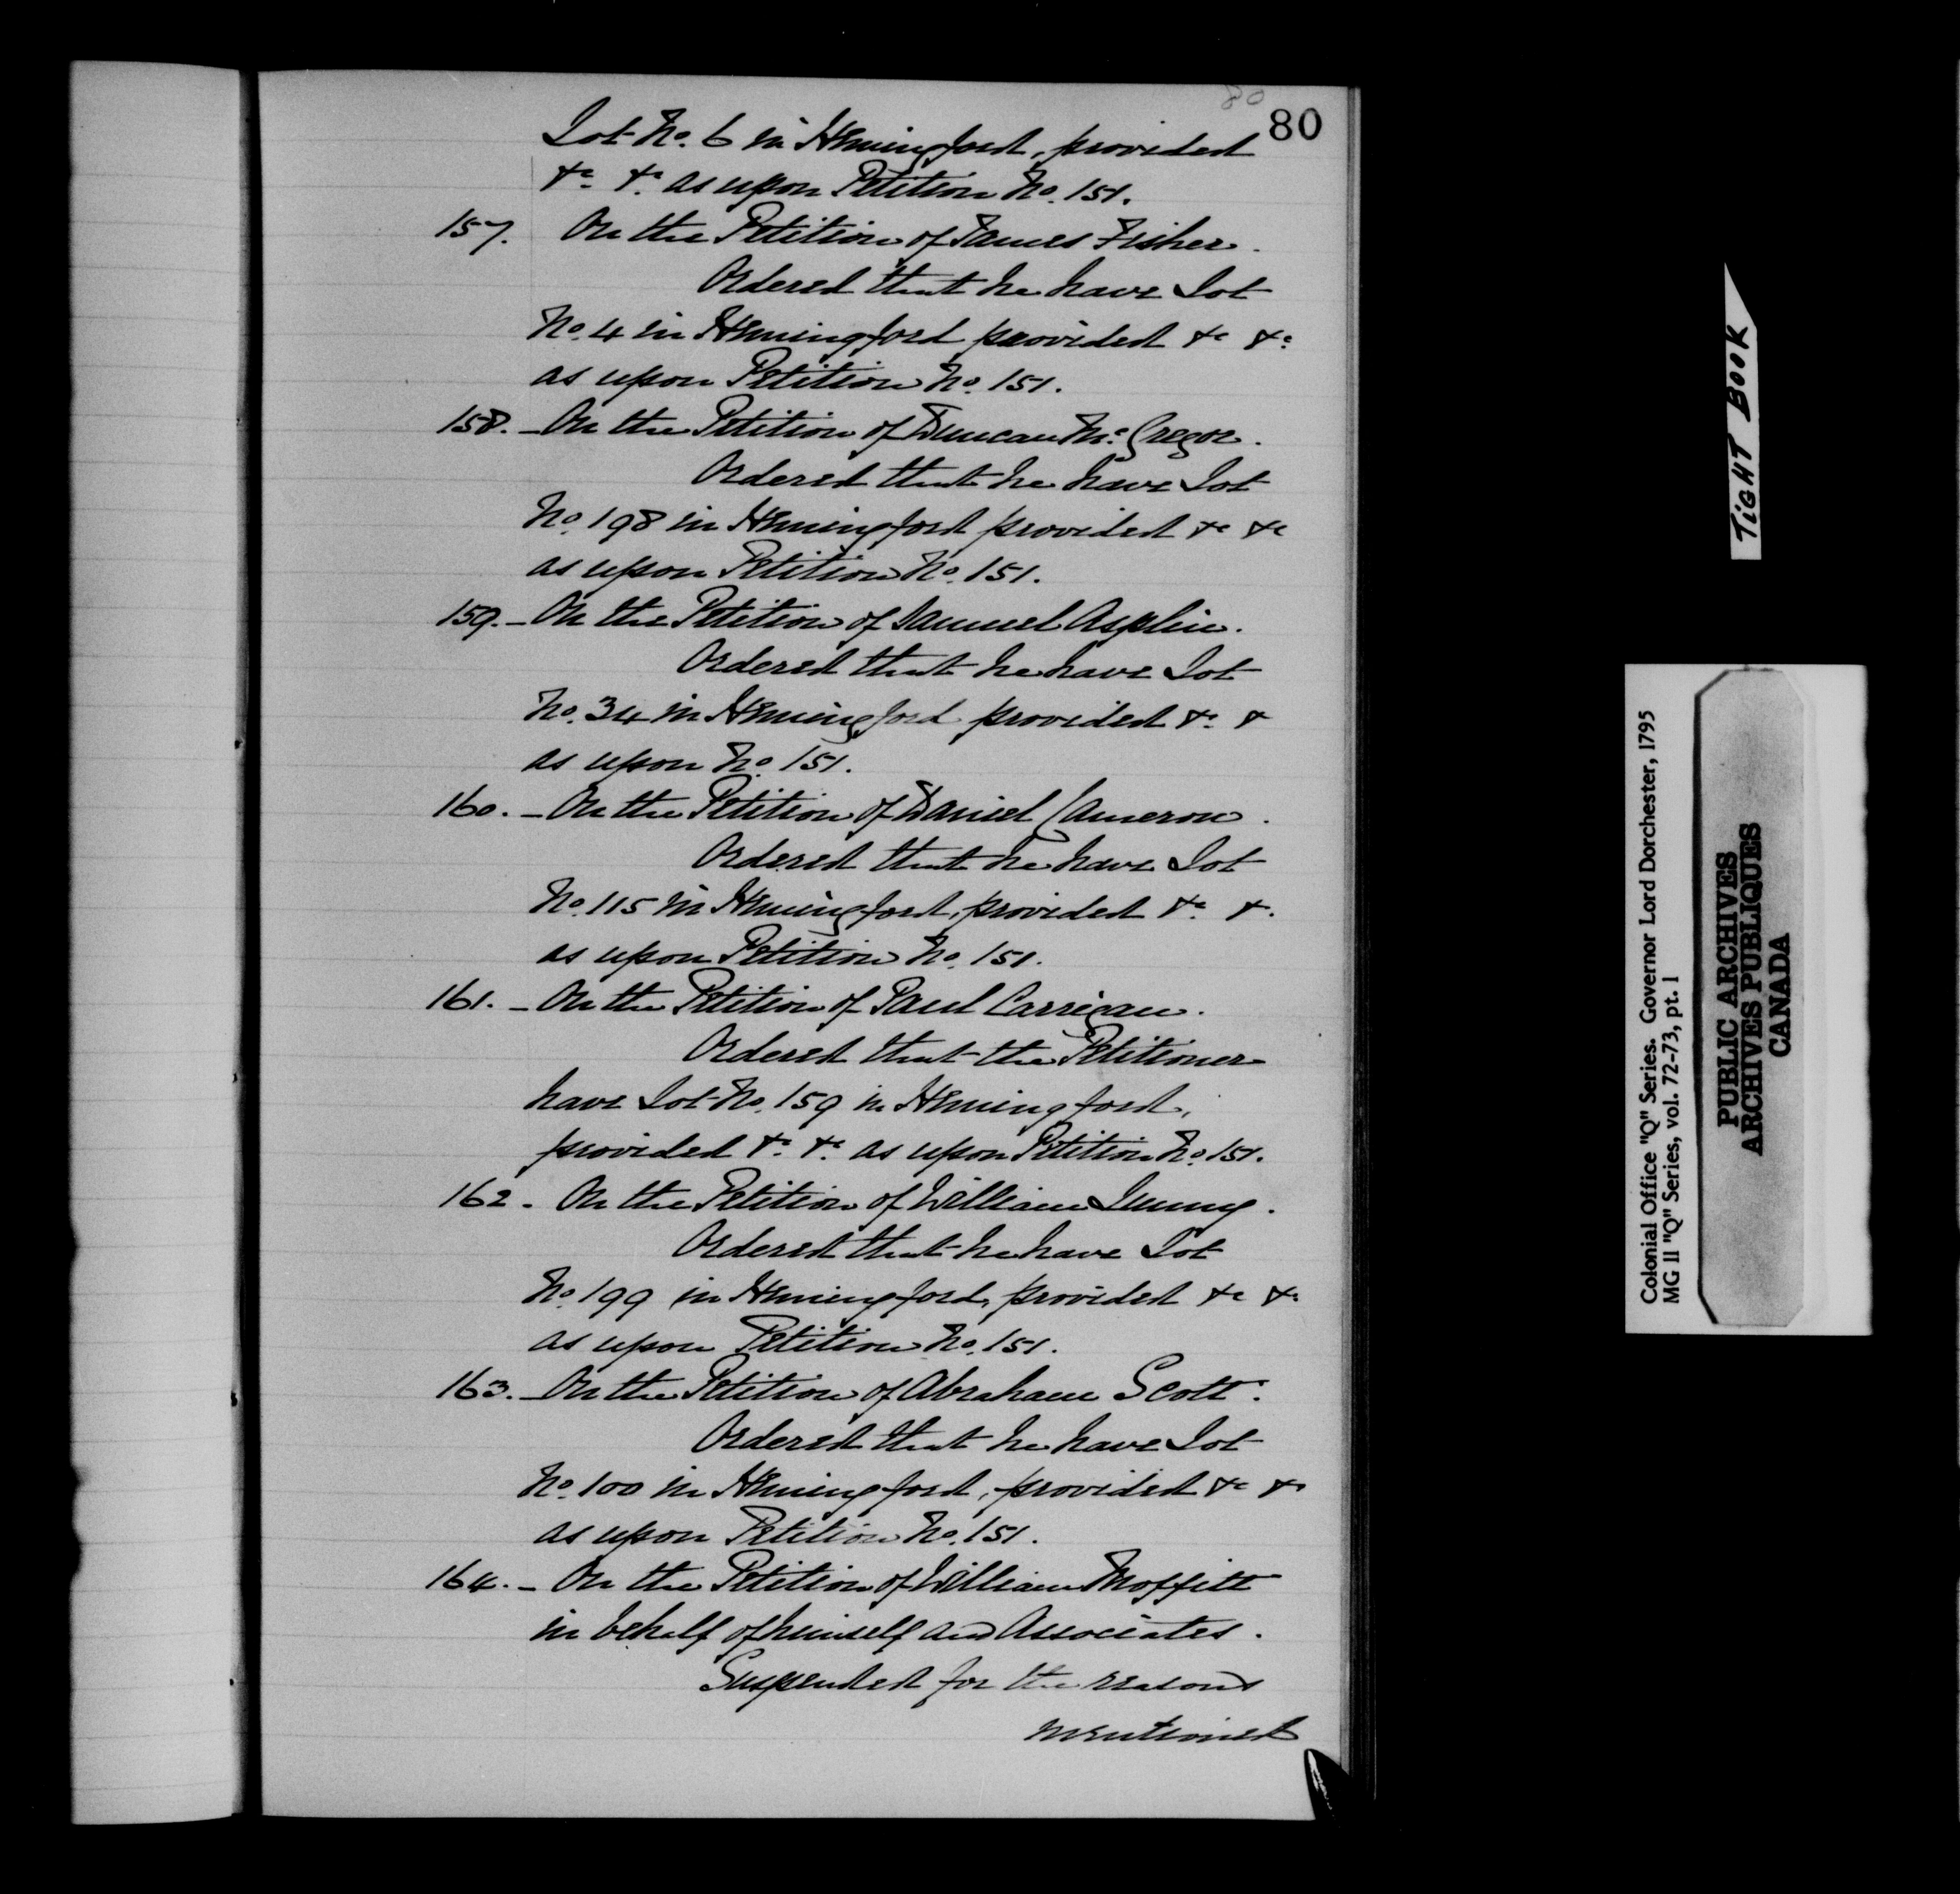 80
80
Lot No. 6 in Hemingford, provided
&c. &c. as upon Petition No. 151.
157. On the Petition of James Fisher.
Ordered that he have Lot
No. 4 in Hemingford provided &c &c.
as upon Petition No. 151.
158. - On the Petition of Duncan McGregor.
Ordered that he have Lot
No. 198 in Hemingford provided &c &c
as upon Petition No. 151.
159. - On the Petition of Samuel Asplin.
Ordered that he have Lot
No. 34 in Hemingford provided &c. &
as upon No. 151.
160. - On the Petition of Daniel Cameron.
Ordered that he have Lot
No. 115 in Hemingford, provided &c. &.
as upon Petition No. 151.
161. - On the Petition of Paul Carrigan.
Ordered that the Petitioner
have Lot No. 159 in Hemingford,
provided &c. &c. as upon Petition No. 151.
162. On the Petition of William.
Ordered that he have Lot
No. 199 in Hemingford, provided &c &c
as upon Petition No. 151.
163. - On the Petition of Abraham Scott.
Ordered that he have Lot
No. 100 in Hemingford, provided &c &c
as upon Petition No. 151.
164. - On the Petition of William Moffitt
in behalf of himself and Associates.
Suspended for the reasons
mentioned
TIGHT BOOK
Colonial Office "Q" Series. Governor Lord Dorchester, 1795
MG 11 "Q" Series, vol. 72-73, pt. 1
PUBLIC ARCHIVES
ARCHIVES PUBLIQUES
CANADA